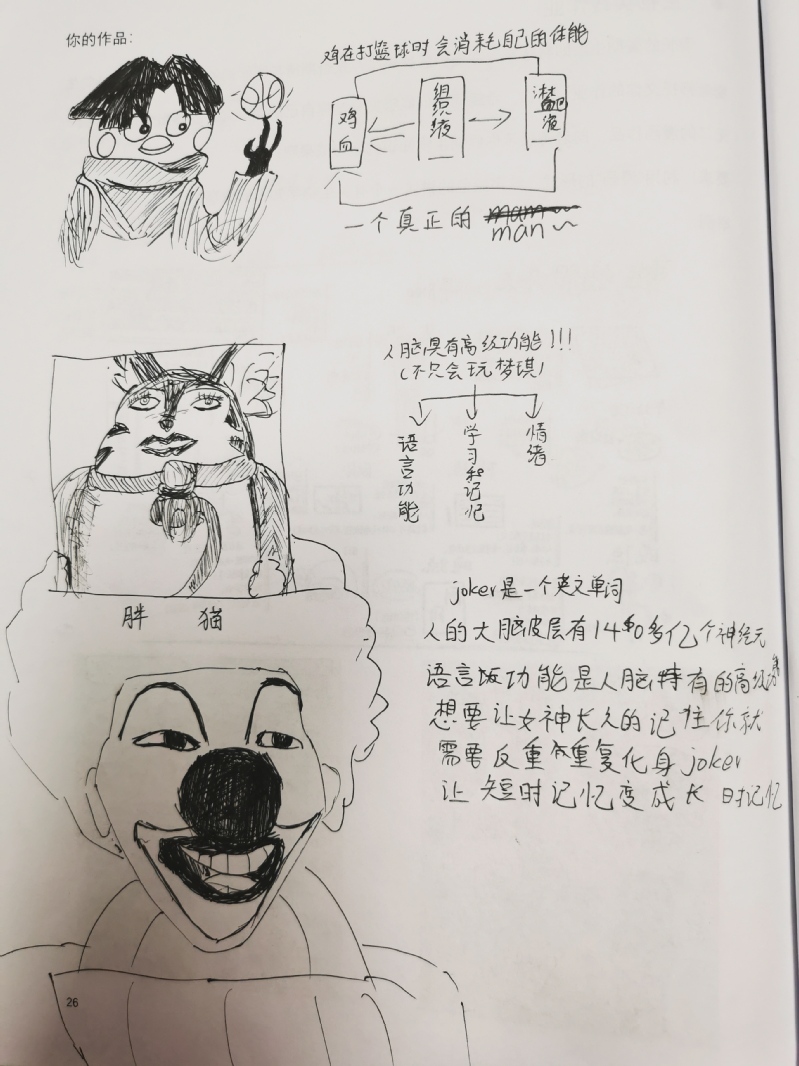 你的作品:
鸡在打篮球时会消耗自己的体能
鸡血
组织液
淋巴液
一个真正的 mam~
man~
人脑具有高级功能!!!
(不只会玩梦琪)
语言功能
学习和记忆
情绪
胖 猫
joker是一个英文单词
人的大脑皮层有140多亿个神经元
语言功能是人脑特有的高级功能
想要让女神长久的记住你就
需要反重复化身joker
让短时记忆变成长时记忆
26